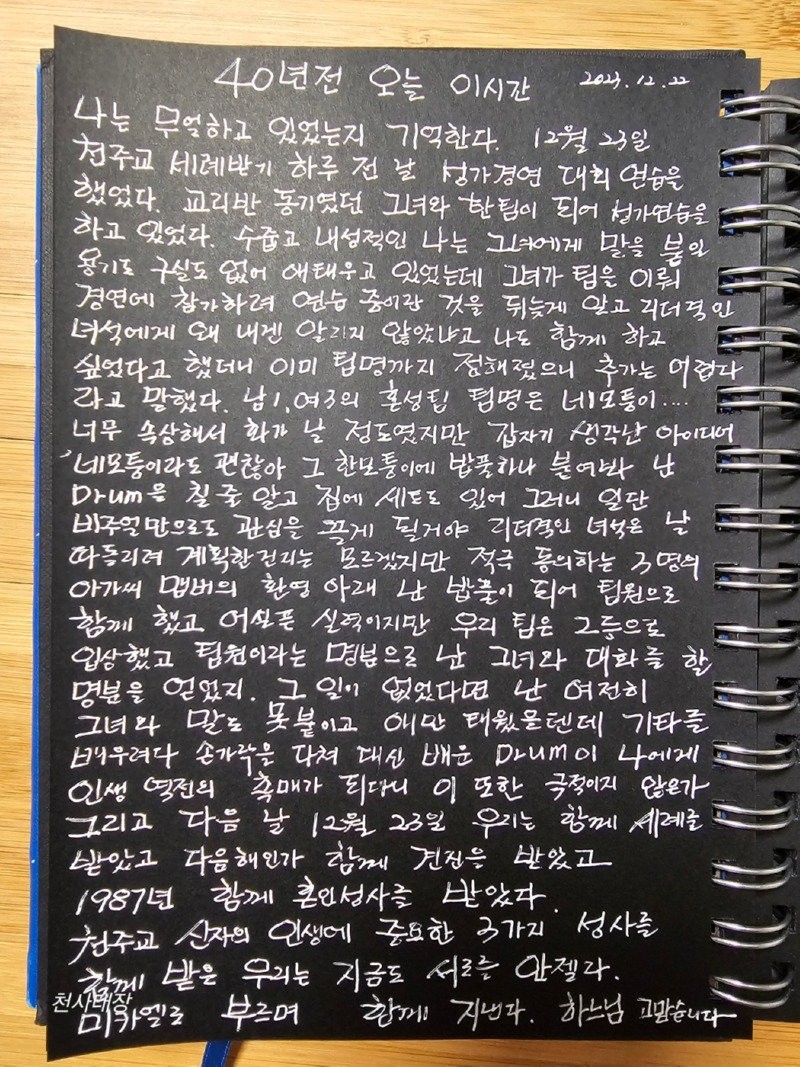 40년전 오늘 이시간 2023.12.22
나는 무얼하고 있었는지 기억한다. 12월 23일
천주교 세례받기 하루 전 날 성가경연 대회 연습을
했었다. 교리반 동기였던 그녀와 한팀이 되어 성가연습을
하고 있었다. 수줍고 내성적인 나는 그녀에게 말을 붙일
용기도 구실도 없어 애태우고 있었는데 그녀가 팀을 이뤄
경연에 참가하려 연습 중이란 것을 뒤늦게 알고 리더격인
녀석에게 왜 내겐 알리지 않았냐고 나도 함께 하고
싶었다고 했더니 이미 팀명까지 정해졌으니 추가는 어렵다
라고 말했다. 남1, 여3의 혼성팀 팀명은 네모퉁이....
너무 속상해서 화가 날 정도였지만 갑자기 생각난 아이디어
'네모퉁이라도 괜찮아 그 한모퉁이에 밥풀하나 붙여봐 난
Drum을 칠 줄 알고 집에 세트도 있어 그러니 일단
비주얼만으로도 관심을 끌게 될거야 리더격인 녀석은 날
따돌리려 계획한건지는 모르겠지만 적극 동의하는 3명의
아가씨 맴버의 환영 아래 난 밥풀이 되어 팀원으로
함께 했고 어설픈 실력이지만 우리 팀은 2등으로
입상했고 팀원이라는 명분으로 난 그녀와 대화를 할
명분을 얻었지. 그 일이 없었다면 난 여전히
그녀와 말도 못붙이고 애만 태웠을텐데 기타를
배우려다 손가락을 다쳐 대신 배운 Drum이 나에게
인생 역전의 촉매가 되다니 이 또한 극적이지 않은가
그리고 다음 날 12월 23일 우리는 함께 세례를
받았고 다음해인가 함께 견진을 받았고
1987년 함께 혼인성사를 받았다.
천주교 신자의 인생에 중요한 3가지 성사를
함께 받은 우리는 지금도 서로를 안젤라.
천사대장
미카엘로 부르며 함께 지낸다. 하느님 고맙습니다